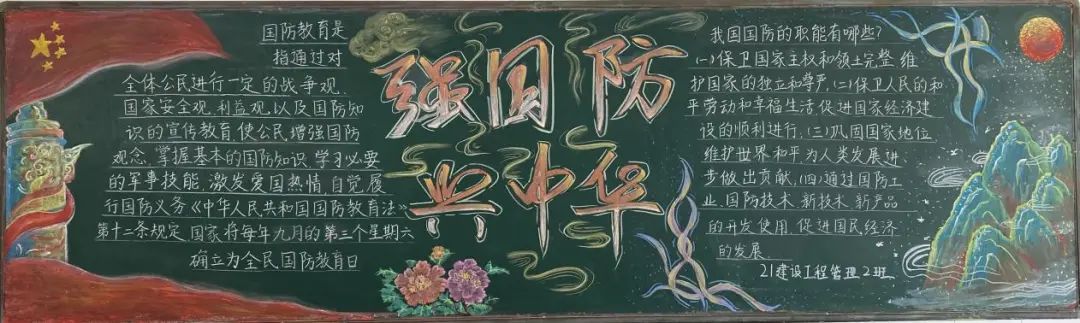 国防教育是
指通过对
全体公民进行一定的战争观、
国家安全观、利益观、以及国防知
识的宣传教育,使公民增强国防
观念、掌握基本的国防知识、学习必要
的军事技能、激发爱国热情、自觉履
行国防义务《中华人民共和国国防教育法》
第十二条规定,国家将每年九月的第三个星期六
确立为全民国防教育日
强国防
兴中华
我国国防的职能有哪些?
(一)保卫国家主权和领土完整,维
护国家的独立和尊严,(二)保卫人民的和
平劳动和幸福生活,促进国家经济建
设的顺利进行,(三)巩固国家地位
维护世界和平,为人类发展进
步做出贡献,(四)通过国防工
业、国防技术、新技术、新产品
的开发使用,促进国民经济
的发展
21建设工程管理2班